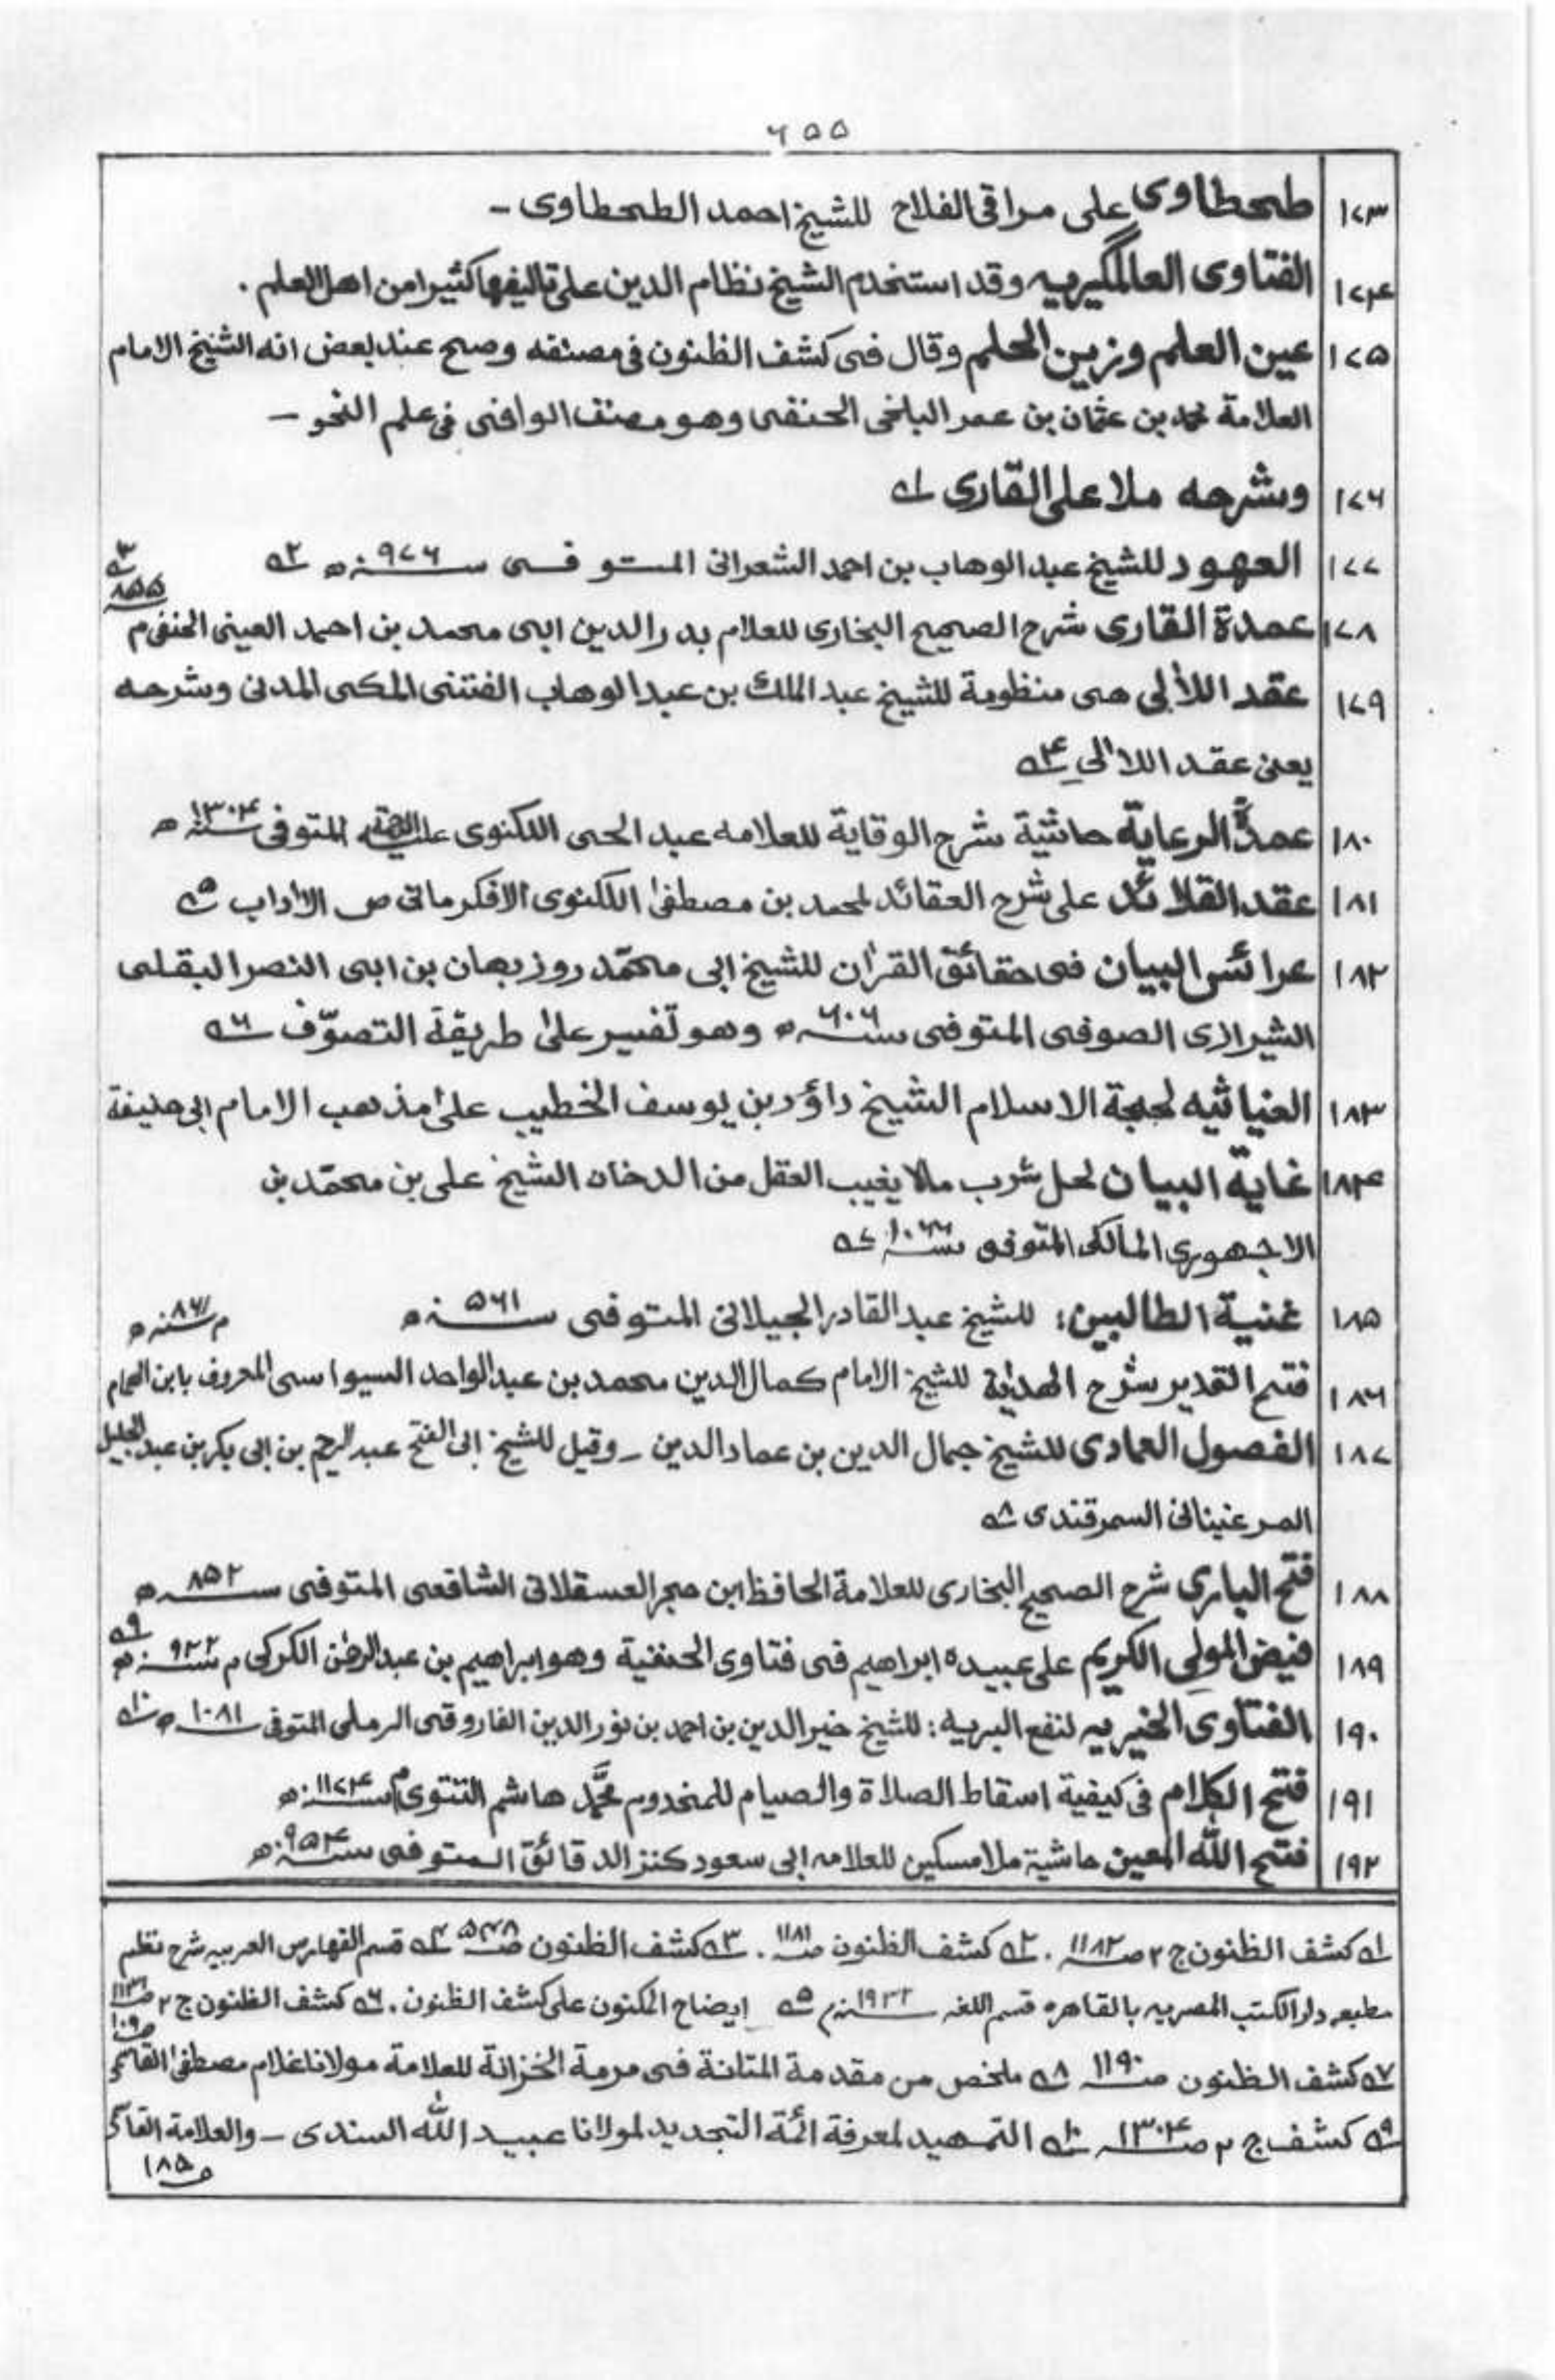 ۶۵۵
۱۷۳ طحطاوی علی مراقی الفلاح للشیخ احمد الطحطاوی ـ
۱۷۴ الفتاوی العالمگیریه وقد استخدم الشیخ نظام الدین علی تالیفها کثیرا من اهل العلم .
۱۷۵ عین العلم وزین الحلم وقال فی کشف الظنون فی مصنفه وصح عند بعض انه الشیخ الامام
العلامة محمد بن عثمان بن عمر البلخی الحنفی وهو مصنف الوافی فی علم النحو ـ
۱۷۶ وشرحه ملا علی القاری ؎۱
۱۷۷ العهود للشیخ عبد الوهاب بن احمد الشعرانی المتوفی سنه ۹۷۶ ه ؎۲
؎۳ ۸۵۵
۱۷۸ عمدة القاری شرح الصحیح البخاری للعلام بدر الدین ابی محمد بن احمد العینی الحنفی م
۱۷۹ عقد اللاٰلی هی منظومة للشیخ عبد الملک بن عبد الوهاب الفتنی المکی المدنی وشرحه
یعنی عقد اللاٰلی ؎۴
۱۸۰ عمدة الرعایة حاشیة شرح الوقایة للعلامه عبد الحی اللکنوی علیه الرحمة المتوفی سنه ۱۳۰۴ ه
۱۸۱ عقد القلائد علی شرح العقائد لمحمد بن مصطفیٰ اللکنوی الافکرمانی ص الاٰداب ؎۵
۱۸۲ عرائس البیان فی حقائق القرٰان للشیخ ابی محمّد روزبهان بن ابی النصر البقلی
الشیرازی الصوفی المتوفی سنه ۶۰۶ ه وهو تفسیر علیٰ طریقة التصوّف ؎۶
۱۸۳ الغیاثیه لحجة الاسلام الشیخ داؤد بن یوسف الخطیب علیٰ مذهب الامام ابی حنیفة
۱۸۴ غایة البیان لحل شرب مالا یغیب العقل من الدخان الشیخ علی بن محمّد بن
الاجهوری المالکی المتوفی سنه ۱۰۶۶ ؎۷
۱۸۵ غنیة الطالبین: للشیخ عبد القادر الجیلانی المتوفی سنه ۵۶۱ ه
م سنه ۸۶۱ ه
۱۸۶ فتح القدیر شرح الهدایة للشیخ الامام کمال الدین محمد بن عبد الواحد السیواسی المعروف بابن الهمام
۱۸۷ الفصول العمادی للشیخ جمال الدین بن عماد الدین ـ وقیل للشیخ ابی الفتح عبد الرحیم بن ابی بکر بن عبد الجلیل
المرغینانی السمرقندی ؎۸
۱۸۸ فتح الباری شرح الصحیح البخاری للعلامة الحافظ ابن حجر العسقلانی الشافعی المتوفی سنه ۸۵۲ ه
۱۸۹ فیض المولی الکریم علی عبیده ابراهیم فی فتاوی الحنفیة وهو ابراهیم بن عبد الرحمٰن الکرکی م سنه ۹۲۲ ه ؎۹
۱۹۰ الفتاوی الخیریه لنفع البریه: للشیخ خیر الدین بن احمد بن نور الدین الفاروقی الرملی المتوفی سنه ۱۰۸۱ ه ؎۱۰
۱۹۱ فتح الکلام فی کیفیة اسقاط الصلاة والصیام للمخدوم محمّد هاشم التتوی م سنه ۱۱۷۴ ه
۱۹۲ فتح الله المعین حاشیة ملا مسکین للعلامه ابی سعود کنز الدقائق المتوفی سنه ۹۵۴ ه
؎۱ کشف الظنون ج ۲ ص ۱۱۸۲ . ؎۲ کشف الظنون ص ۱۱۸۱ . ؎۳ کشف الظنون ص ۵۴۸ ؎۴ قسم الفهارس العربیه شرح نظم
مطبعه دار الکتب المصریه بالقاهره قسم اللغه سنه ۱۹۳۲ م ؎۵ ایضاح المکنون علی کشف الظنون . ؎۶ کشف الظنون ج ۲ ص ۱۱۳۱
؎۷ کشف الظنون ص ۱۱۹۰ ؎۸ ملخص من مقدمة المتانة فی مرمة الخزانة للعلامة مولانا غلام مصطفیٰ القاسمی ص ۱۰۹
؎۹ کشف ج ۲ ص ۱۳۰۴ ؎۱۰ التمهید لمعرفة ائمة التجدید لمولانا عبید الله السندی ـ والعلامة القاسمی
ص ۱۸۵